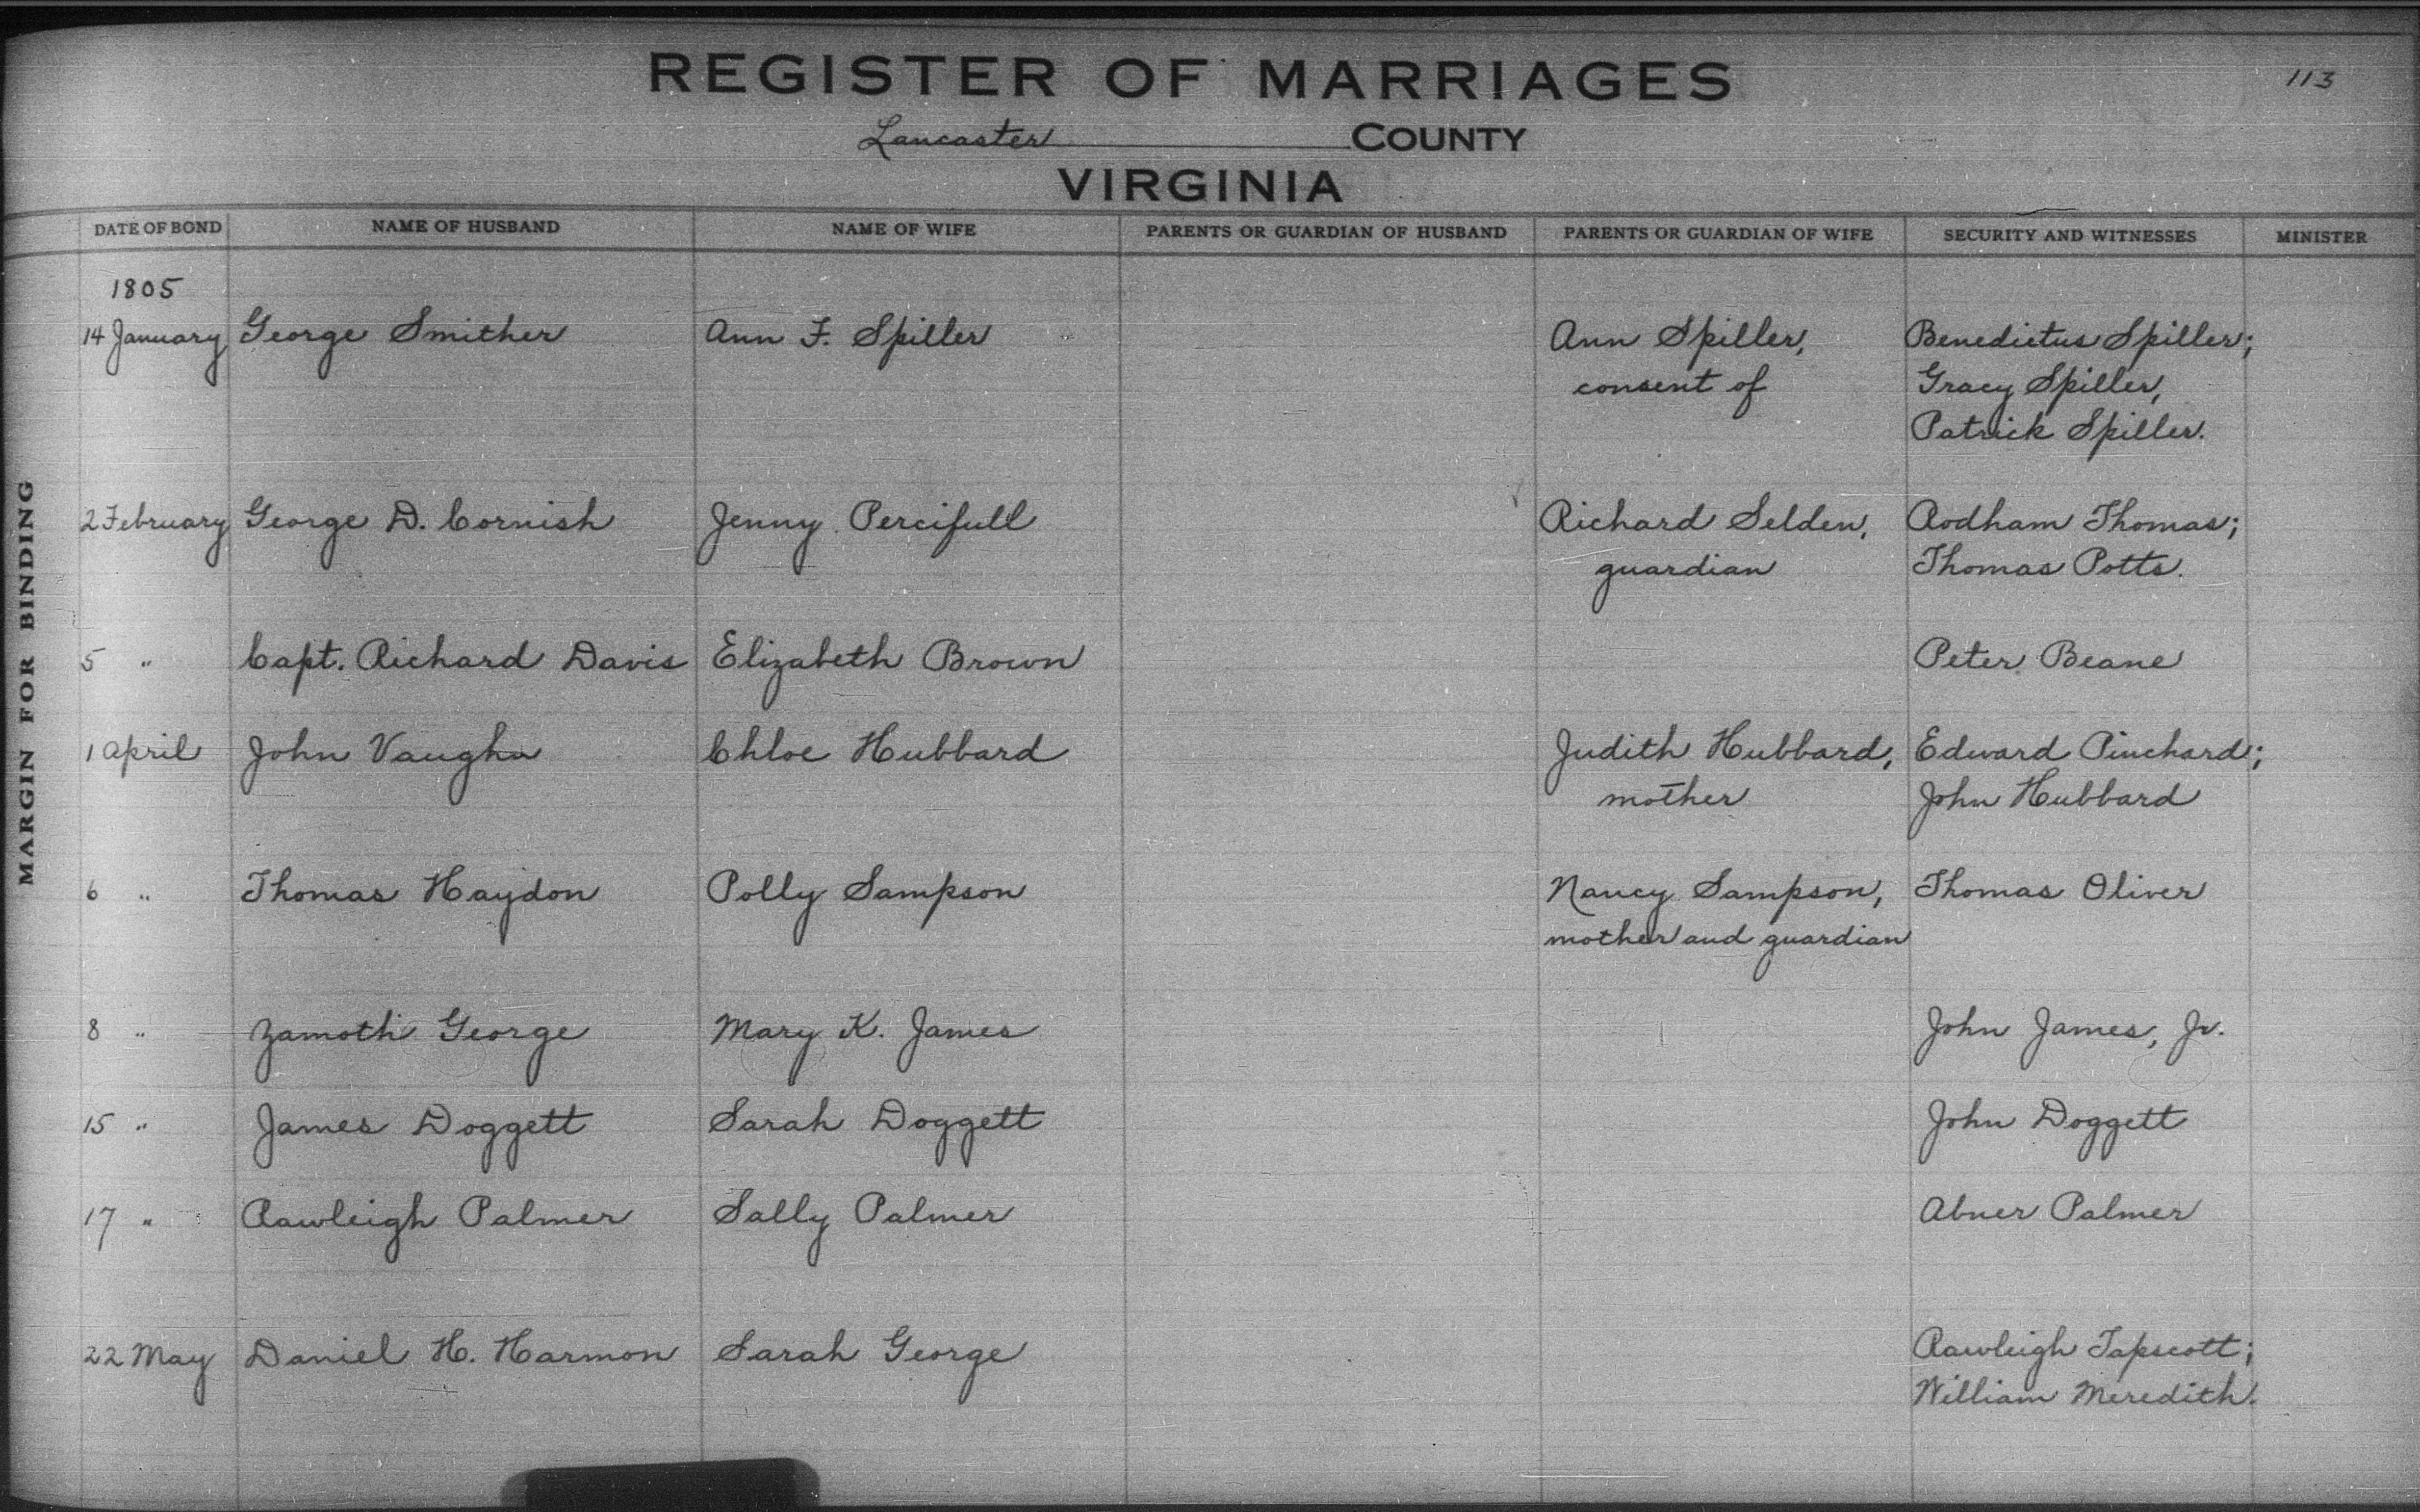 REGISTER OF MARRIAGES
113
Lancaster COUNTY
VIRGINIA
MARGIN FOR BINDING
DATE OF BOND NAME OF HUSBAND NAME OF WIFE PARENTS OR GUARDIAN OF HUSBAND PARENTS OR GUARDIAN OF WIFE SECURITY AND WITNESSES MINISTER
1805
14 January George Smither Ann F. Spiller Ann Spiller, Benedictus Spiller;
consent of Gracy Spiller,
Patrick Spiller.
2 February George D. Cornish Jenny Percifull Richard Selden, Rodham Thomas;
guardian Thomas Potts.
5 " Capt. Richard Davis Elizabeth Brown Peter Beane
1 April John Vaughn Chloe Hubbard Judith Hubbard, Edward Pinchard;
mother John Hubbard
6 " Thomas Haydon Polly Sampson Nancy Sampson, Thomas Oliver
mother and guardian
8 " Zamoth George Mary K. James John James, Jr.
15 " James Doggett Sarah Doggett John Doggett
17 " Rawleigh Palmer Sally Palmer Abner Palmer
22 May Daniel H. Harmon Sarah George Rawleigh Tapscott;
William Meredith.